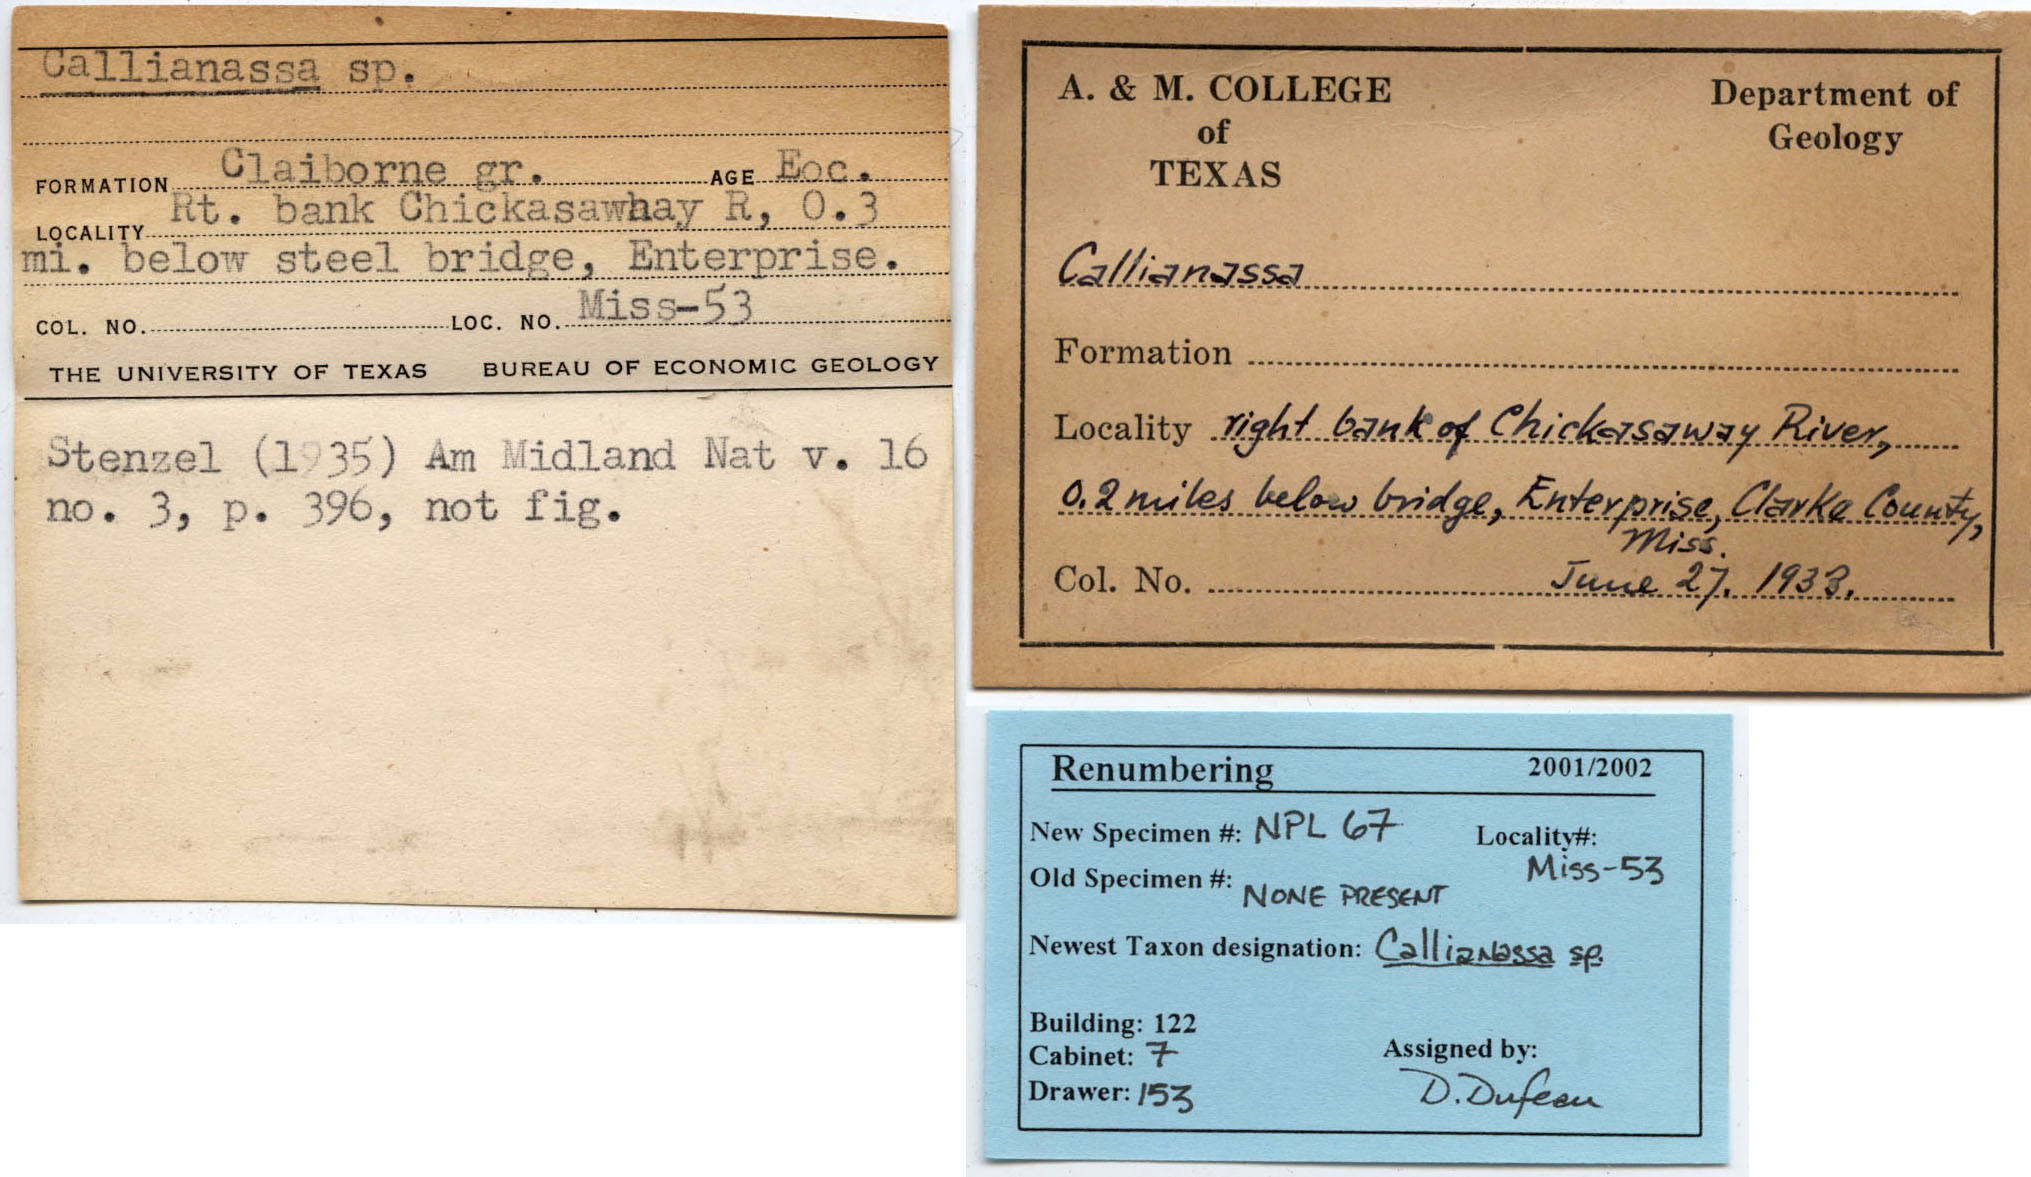 Callianassa sp.
FORMATION Claiborne gr. AGE Eoc.
LOCALITY Rt. bank Chickasawhay R, 0.3
mi. below steel bridge, Enterprise.
COL. NO. LOC. NO. Miss-53
THE UNIVERSITY OF TEXAS BUREAU OF ECONOMIC GEOLOGY
Stenzel (1935) Am Midland Nat v. 16
no. 3, p. 396, not fig.
A. & M. COLLEGE
of
TEXAS
Department of
Geology
Callianassa
Formation
Locality right bank of Chickasaway River,
0.2 miles below bridge, Enterprise, Clarke County,
Miss.
Col. No. June 27. 1933.
Renumbering 2001/2002
New Specimen #: NPL 67 Locality#:
Miss-53
Old Specimen #: NONE PRESENT
Newest Taxon designation: Callianassa sp.
Building: 122
Cabinet: 7
Drawer: 153
Assigned by:
D. Dufeau